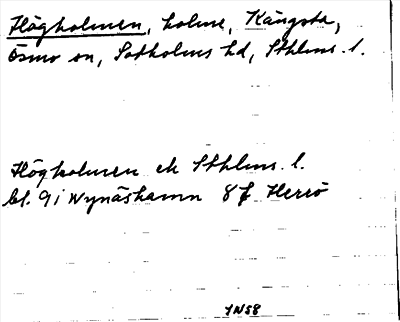 Högholmen, holme, Kängsta,
Ösmo sn, Sotholms hd, Sthlms. l.
Högholmen ek Sthlms. l.
bl. 9 i Nynäshamn 8f Herrö
JN58